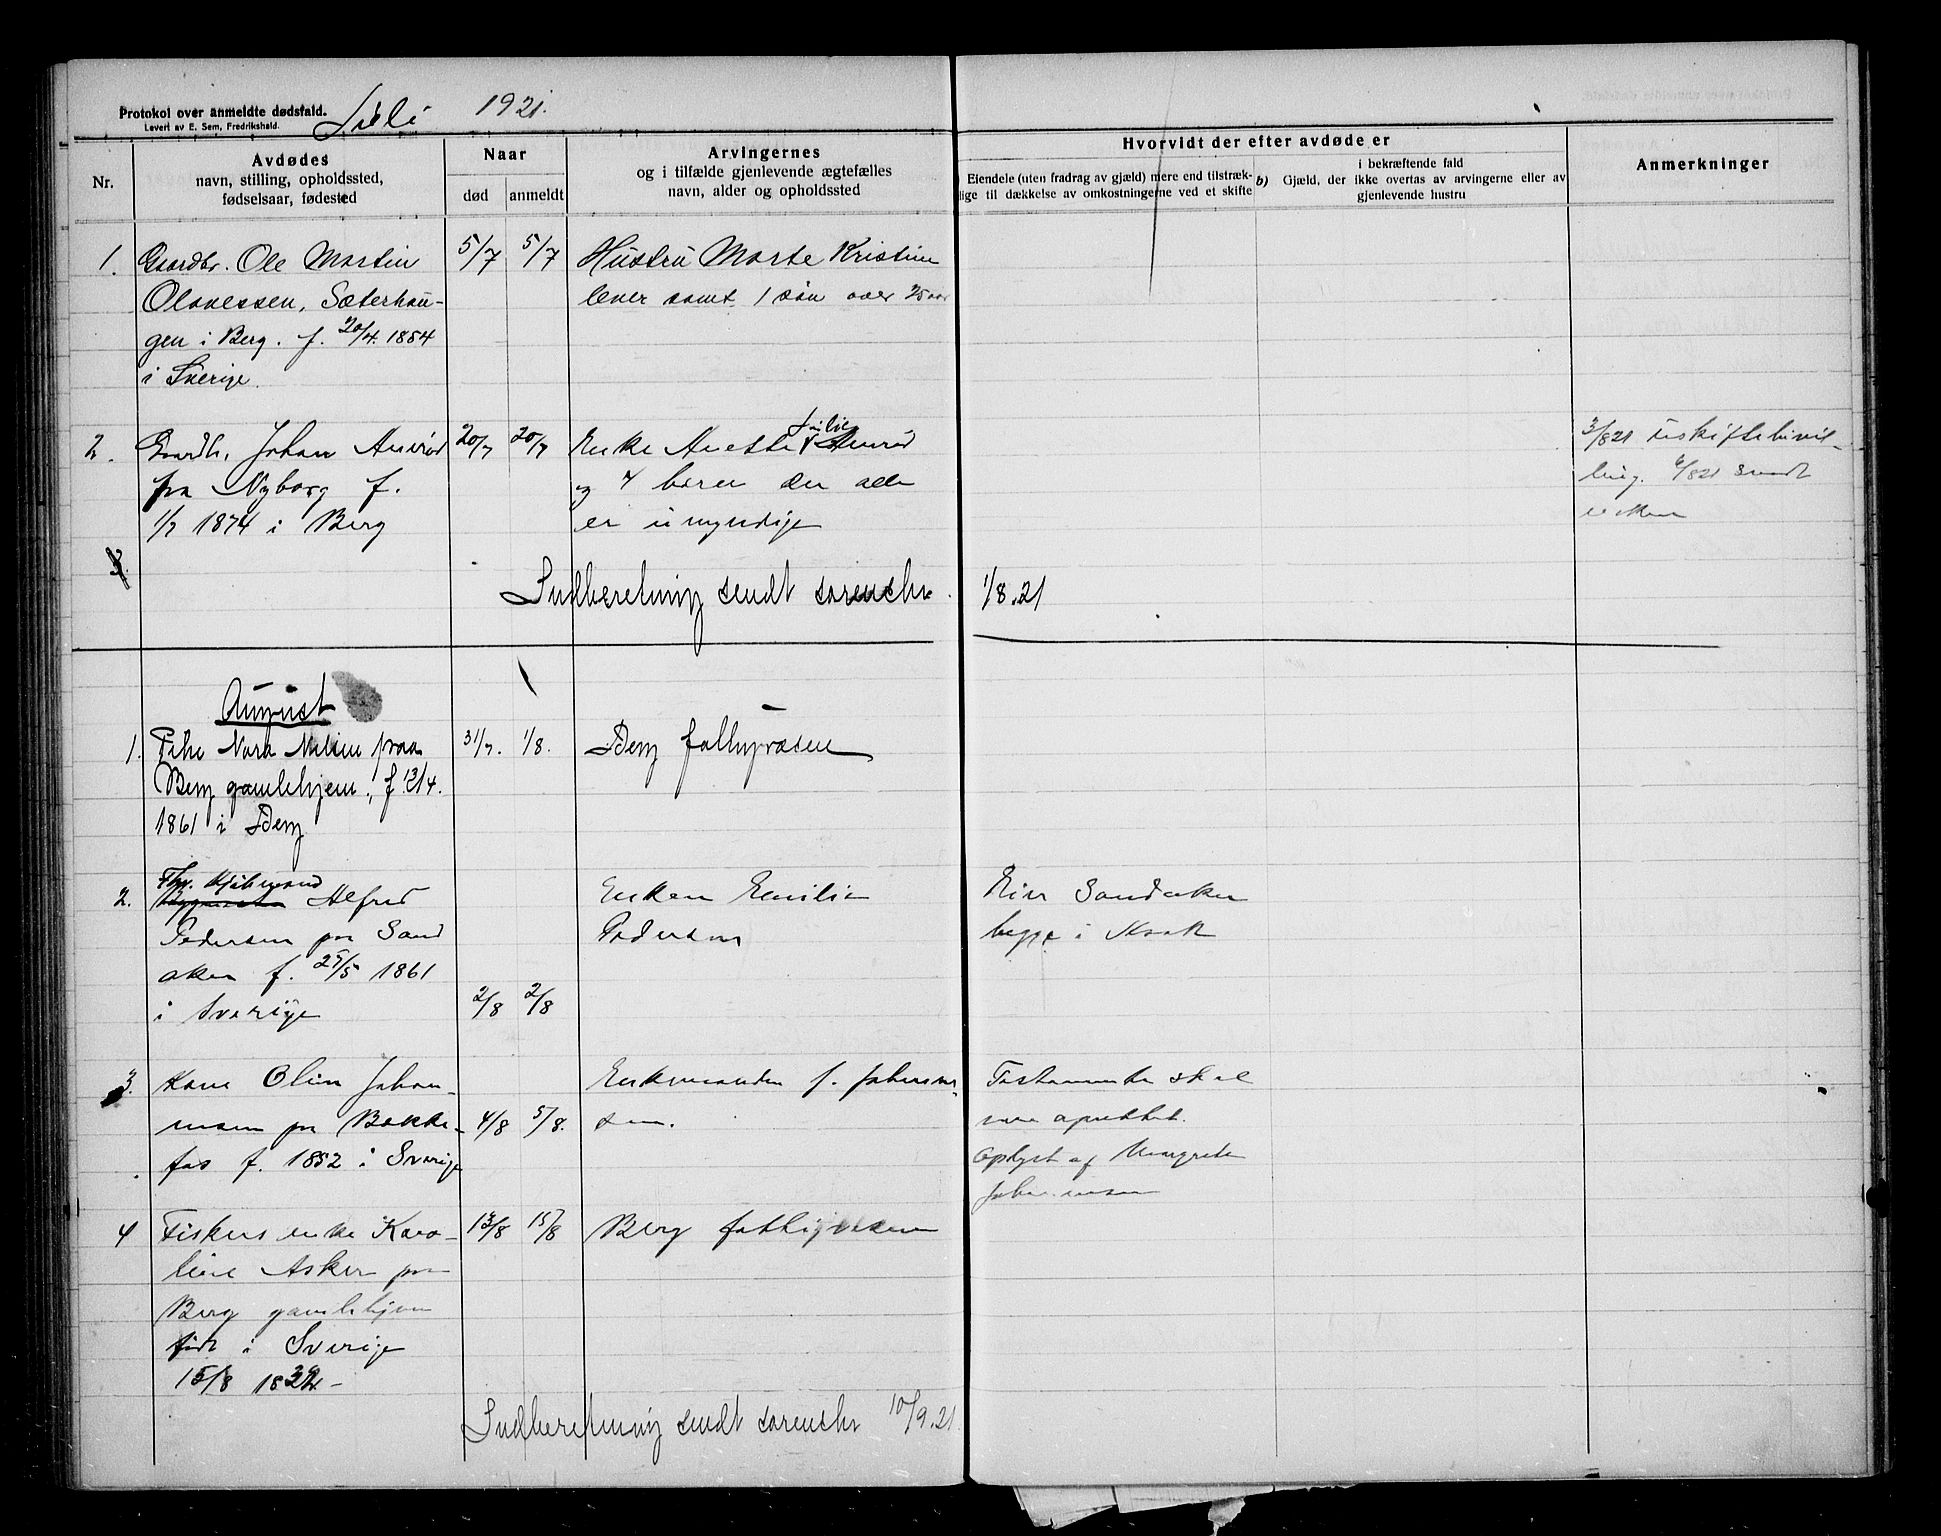 Protokol over anmeldte dødsfald.
Levert av E. Sem, Fredrikshald.
Juli 1921.
Nr.
Avdødes
navn, stilling, opholdssted,
fødselsaar, fødested
Naar
død
anmeldt
Arvingernes
og i tilfælde gjenlevende ægtefælles
navn, alder og opholdssted
Hvorvidt der efter avdøde er
Eiendele (uten fradrag av gjæld) mere end tilstræk-
lige til dækkelse av omkostningerne ved et skifte
b)
i bekræftende fald
Gjæld, der ikke overtas av arvingerne eller av
gjenlevende hustru
Anmerkninger
1. Gaardbr. Ole Martin 5/7 5/7 Hustru Marte Kristine
Olavessen, Sæterhau- lever samt 1 søn over 25 aar
gen i Berg. f. 20/4. 1854
i Sverige.
2. Gaardb. Johan 20/7 20/7 Enke Anette Julie 3/8 21 uskiftebevil-
fra Nyborg f. og 4 børn der alle ling. 6/8 21 sendt
1/7 1874 i Berg er umyndige enken
3.
Indberetning sendt sorenskr. 1/8.21
August
1. Pike Nora Nilsen paa 31/7. 1/8. Berg fattigvæsen
Berg gamlehjem, f. 13/4.
1861 i Berg
2. Fhv. Kjøbmand Alfred Enken Emilie Eier Sandaken
Pedersen paa Sand Pedersen begge i
aken f. 25/5 1861
i Sverige 2/8 2/8
3. Kone Olin Johan- Enkemanden J. Johannes- Testamente skal
nesen paa Bakke- 4/8 5/8. sen. være oprettet.
fos f. 1852 i Sverige Oplyst af Margrete
Johannesen
4 Fiskers enke Karo- 13/8 15/8 Berg fattigvæsen
line Asker paa
Berg gamlehjem
født i Sverige
15/8
Indberetning sendt sorenskr 10/9.21